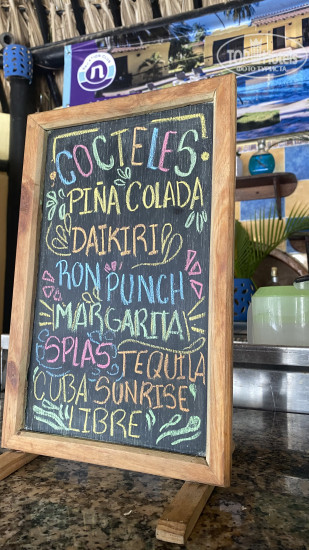 n
TOPHOTELS
ФОТО ТУРИСТА
COCTELES
PIÑA COLADA
DAIKIRI
RON PUNCH
MARGARITA
SPLAS TEQUILA
CUBA SUNRISE
LIBRE